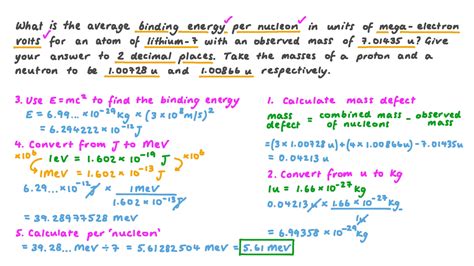 What is the average binding energy per nucleon in units of mega-electron
volts for an atom of lithium-7 with an observed mass of 7.01435 u? Give
your answer to 2 decimal places. Take the masses of a proton and a
neutron to be 1.00728 u and 1.00866 u respectively.
3. Use E=mc² to find the binding energy
E = 6.99... ×10⁻²⁹ kg × (3 ×10⁸ m/s)²
= 6.294222 ×10⁻¹² J
4. Convert from J to MeV
×10⁶ 1eV = 1.602 ×10⁻¹⁹ J ×10⁶
1MeV = 1.602 ×10⁻¹³ J
6.29... ×10⁻¹² J × 1MeV / 1.602 ×10⁻¹³ J
= 39.28977528 MeV
5. Calculate per 'nucleon'
= 39.28... MeV ÷ 7 = 5.61282504 MeV = 5.61 MeV
1. Calculate mass defect
mass defect = combined mass of nucleons − observed mass
= (3 × 1.00728u) + (4 × 1.00866u) − 7.01435u
= 0.04213 u
2. Convert from u to kg
1u = 1.66 ×10⁻²⁷ kg
0.04213 u × 1.66 ×10⁻²⁷ kg / 1u
= 6.99358 ×10⁻²⁹ kg